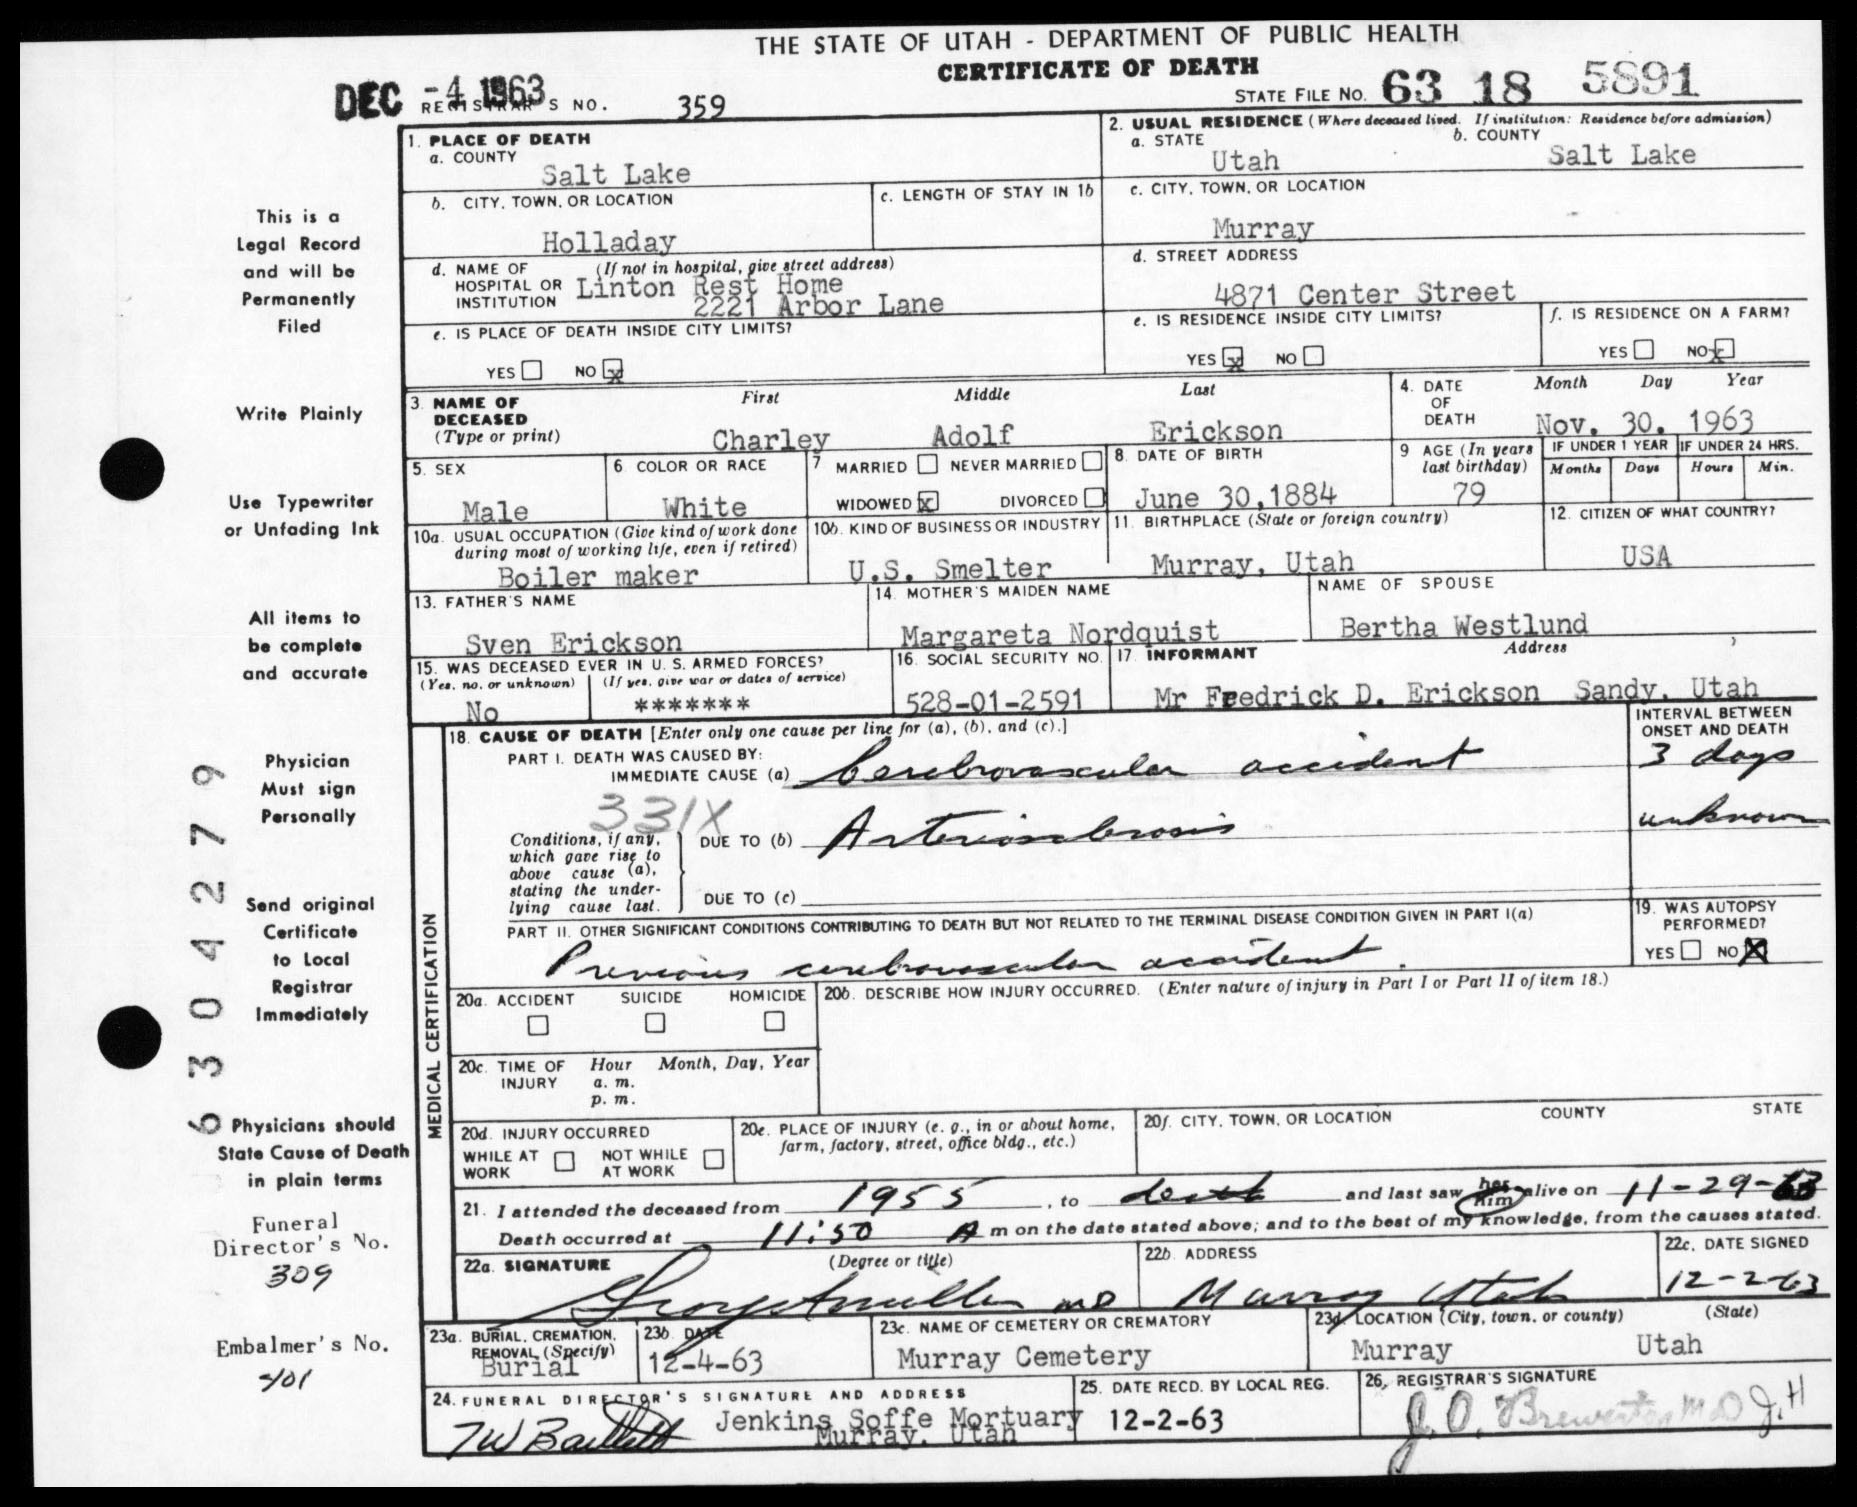 THE STATE OF UTAH - DEPARTMENT OF PUBLIC HEALTH
CERTIFICATE OF DEATH
DEC -4 1963
REGISTRAR'S NO. 359
STATE FILE NO. 63 18 5891
1. PLACE OF DEATH
a. COUNTY
Salt Lake
2. USUAL RESIDENCE (Where deceased lived. If institution: Residence before admission)
a. STATE
Utah
b. COUNTY
Salt Lake
b. CITY, TOWN, OR LOCATION
Holladay
c. LENGTH OF STAY IN 1b
c. CITY, TOWN, OR LOCATION
Murray
d. NAME OF HOSPITAL OR INSTITUTION
(If not in hospital, give street address)
Linton Rest Home
2221 Arbor Lane
d. STREET ADDRESS
4871 Center Street
e. IS PLACE OF DEATH INSIDE CITY LIMITS?
YES NO x
e. IS RESIDENCE INSIDE CITY LIMITS?
YES x NO
f. IS RESIDENCE ON A FARM?
YES NO x
3. NAME OF DECEASED
(Type or print)
First Middle Last
Charley Adolf Erickson
4. DATE OF DEATH
Month Day Year
Nov. 30. 1963
5. SEX
Male
6. COLOR OR RACE
White
7 MARRIED NEVER MARRIED
WIDOWED x DIVORCED
8. DATE OF BIRTH
June 30,1884
9 AGE (In years last birthday)
79
IF UNDER 1 YEAR
Months Days
IF UNDER 24 HRS.
Hours Min.
10a. USUAL OCCUPATION (Give kind of work done during most of working life, even if retired)
Boiler maker
10b. KIND OF BUSINESS OR INDUSTRY
U.S. Smelter
11. BIRTHPLACE (State or foreign country)
Murray, Utah
12. CITIZEN OF WHAT COUNTRY?
USA
13. FATHER'S NAME
Sven Erickson
14. MOTHER'S MAIDEN NAME
Margareta Nordquist
NAME OF SPOUSE
Bertha Westlund
15. WAS DECEASED EVER IN U. S. ARMED FORCES?
(Yes, no, or unknown)
No
(If yes, give war or dates of service)
*******
16. SOCIAL SECURITY NO.
528-01-2591
17. INFORMANT Address
Mr Fredrick D. Erickson Sandy, Utah
MEDICAL CERTIFICATION
18. CAUSE OF DEATH [Enter only one cause per line for (a), (b), and (c).]
INTERVAL BETWEEN ONSET AND DEATH
PART I. DEATH WAS CAUSED BY:
IMMEDIATE CAUSE (a) Cerebrovascular accident 3 days
331X
Conditions, if any, which gave rise to above cause (a), stating the underlying cause last.
DUE TO (b) Arteriosclerosis unknown
DUE TO (c)
PART II. OTHER SIGNIFICANT CONDITIONS CONTRIBUTING TO DEATH BUT NOT RELATED TO THE TERMINAL DISEASE CONDITION GIVEN IN PART I(a)
Previous cerebrovascular accident.
19. WAS AUTOPSY PERFORMED?
YES NO X
20a. ACCIDENT SUICIDE HOMICIDE
20b. DESCRIBE HOW INJURY OCCURRED. (Enter nature of injury in Part I or Part II of item 18.)
20c. TIME OF INJURY
Hour Month, Day, Year
a. m.
p. m.
20d. INJURY OCCURRED
WHILE AT WORK NOT WHILE AT WORK
20e. PLACE OF INJURY (e. g., in or about home, farm, factory, street, office bldg., etc.)
20f. CITY, TOWN, OR LOCATION COUNTY STATE
21. I attended the deceased from 1955, to death and last saw her him alive on 11-29-63
Death occurred at 11:50 A m on the date stated above; and to the best of my knowledge, from the causes stated.
22a. SIGNATURE (Degree or title)
MD
22b. ADDRESS
Murray Utah
22c. DATE SIGNED
12-2-63
23a. BURIAL, CREMATION, REMOVAL (Specify)
Burial
23b. DATE
12-4-63
23c. NAME OF CEMETERY OR CREMATORY
Murray Cemetery
23d. LOCATION (City, town, or county) (State)
Murray Utah
24. FUNERAL DIRECTOR'S SIGNATURE AND ADDRESS
TW Bartlett
Jenkins Soffe Mortuary
Murray, Utah
25. DATE RECD. BY LOCAL REG.
12-2-63
26. REGISTRAR'S SIGNATURE
J. O. Brewerton MD J.H
This is a
Legal Record
and will be
Permanently
Filed
Write Plainly
Use Typewriter
or Unfading Ink
All items to
be complete
and accurate
Physician
Must sign
Personally
Send original
Certificate
to Local
Registrar
Immediately
Physicians should
State Cause of Death
in plain terms
Funeral
Director's No.
309
Embalmer's No.
401
6 3 0 4 2 7 9